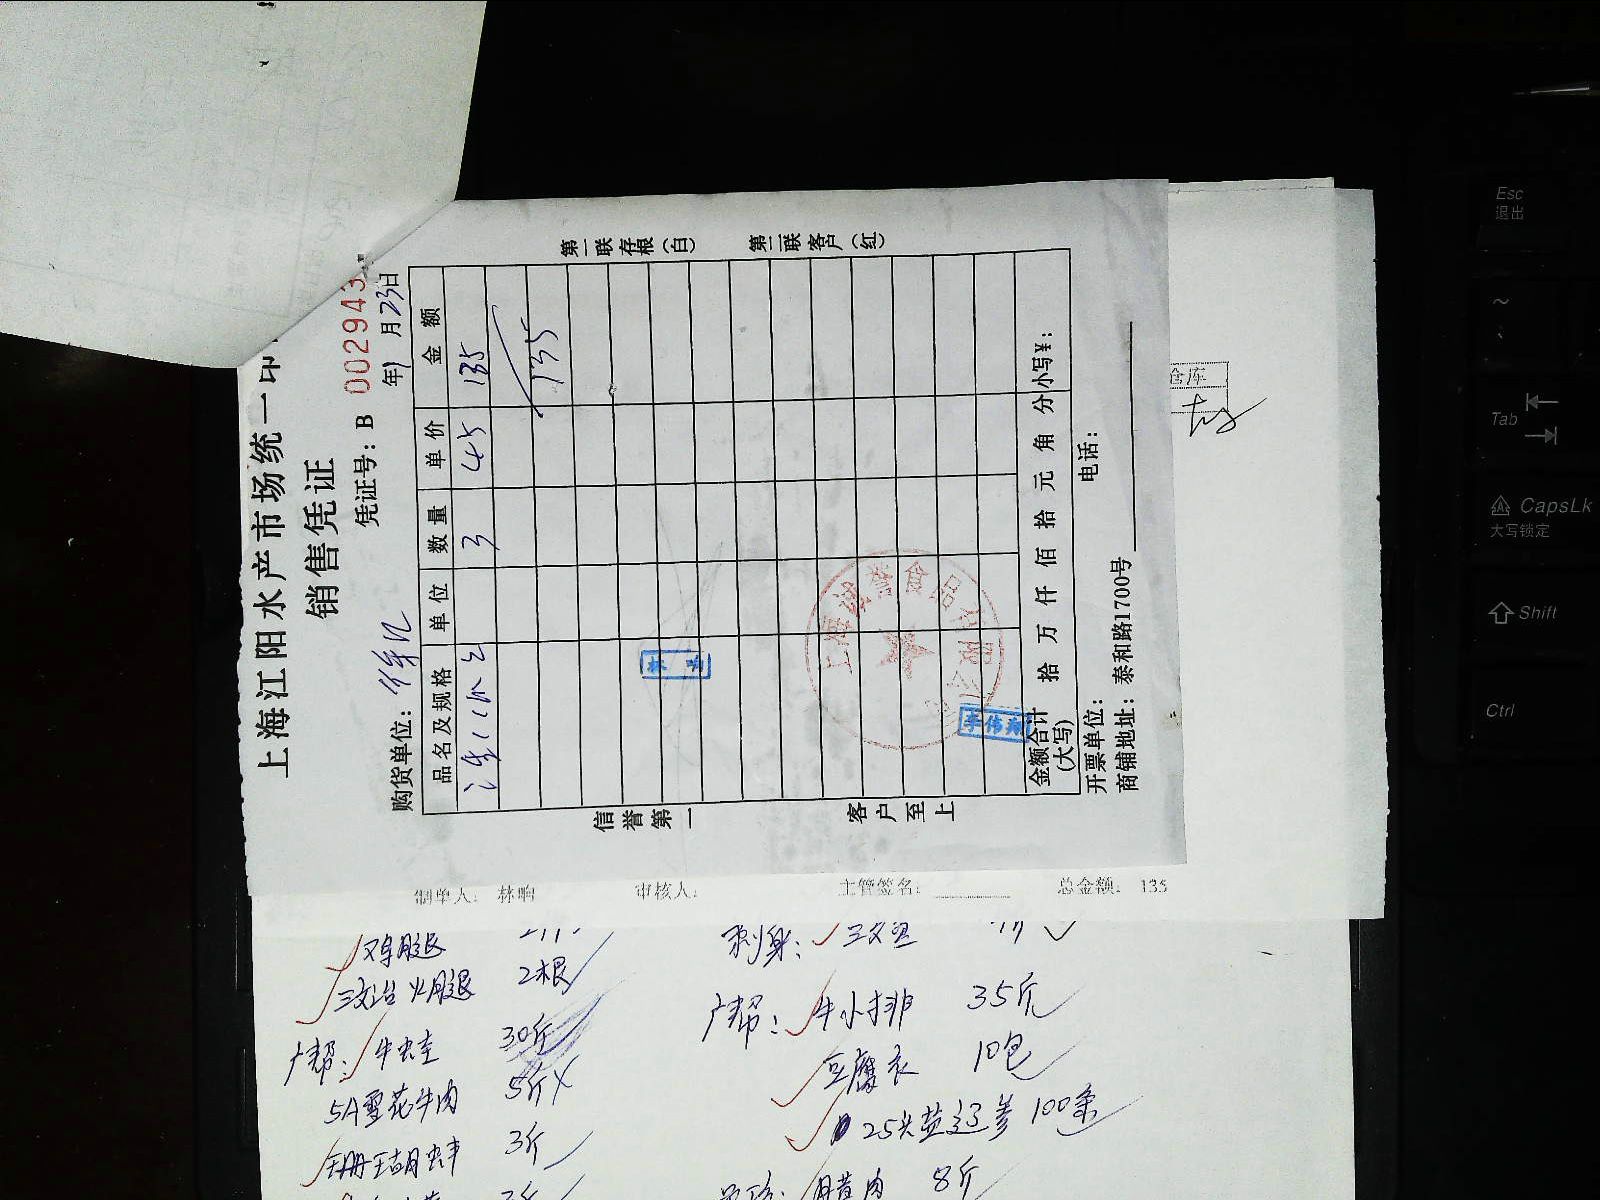 上海江阳水产市场统一印
销售凭证
凭证号: B 002943
购货单位:
年 月23日
品名及规格 单位 数量 单价 金额
3 45 135
135
第一联存根(白) 第二联客户(红)
信誉第一 客户至上
上海 食品有限公司
李伟翔
金额合计(大写) 拾 万 仟 佰 拾 元 角 分 小写¥:
开票单位: 电话:
商铺地址: 泰和路1700号
仓库
制单人: 林响 审核人: 主管签名: 总金额: 135
鸡腿
三文治火腿 2根
广帮: 牛蛙 30斤
5A雪花牛肉 5斤
珊瑚蚌 3斤
刺身: 三文鱼
广帮: 牛小排 35斤
豆腐衣 10包
25头盐辽参 100条
腊肉 8斤
Esc
退出
Tab
CapsLk
大写锁定
Shift
Ctrl